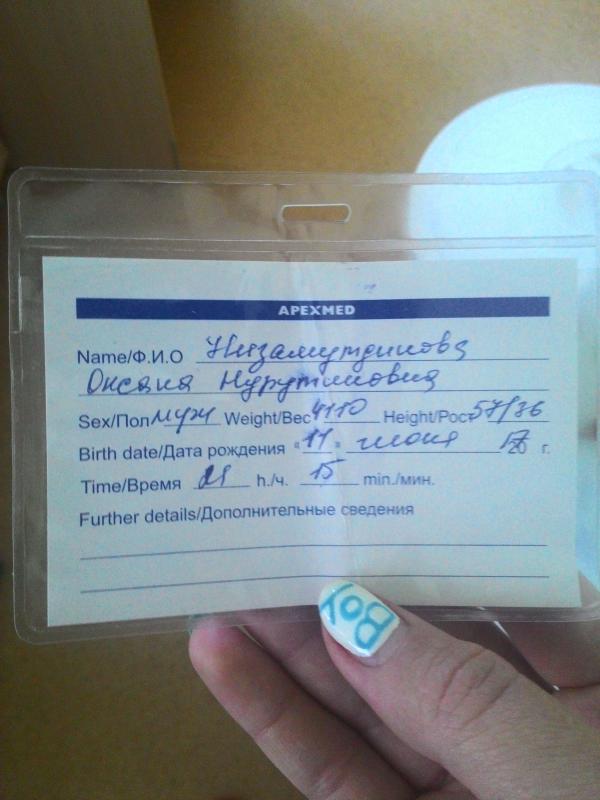 APEXMED
Name/Ф.И.О Низамутдинова
Оксана Нурутиновна
Sex/Пол муж Weight/Вес 4110 Height/Рост 57/36
Birth date/Дата рождения "11" июня 2017 г.
Time/Время 21 h./ч. 15 min./мин.
Further details/Дополнительные сведения
Boy